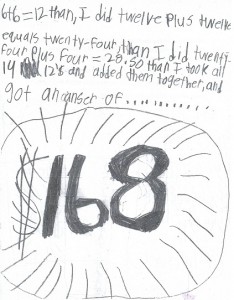 6+6=12 than, I did twelve plus twelve
equals twenty-four, than I did twenty-
four plus four = 28, so than I took all
14 12's and added them together, and
got an anser of ..............
$168